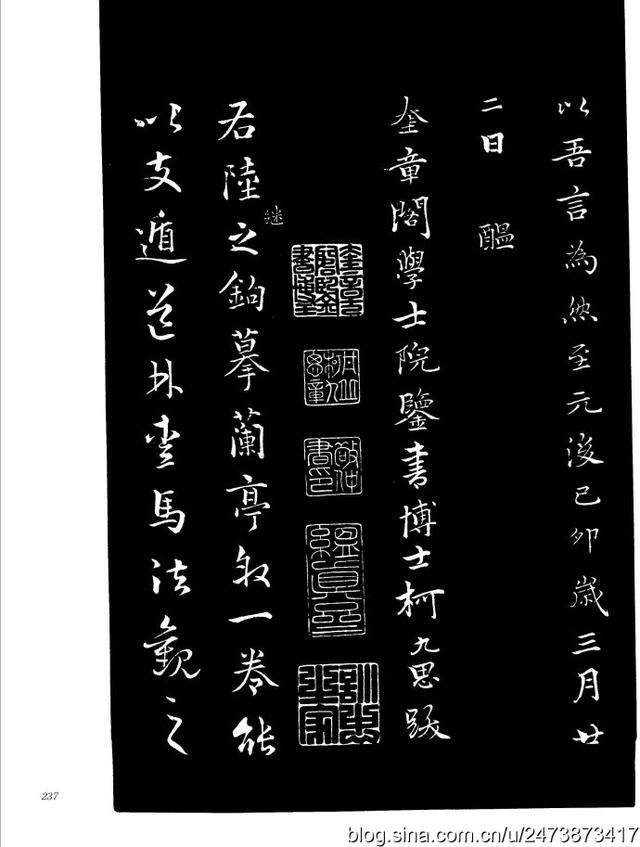 以吾言為然至元後己卯歲三月廿
二日 醖
奎章閣學士院鑒書博士柯九思跋
敬仲書印
緼真齋
訓忠之家
右陸继之鉤摹蘭亭敘一卷能
以支遁道林愛馬法觀之
237
blog.sina.com.cn/u/2473873417